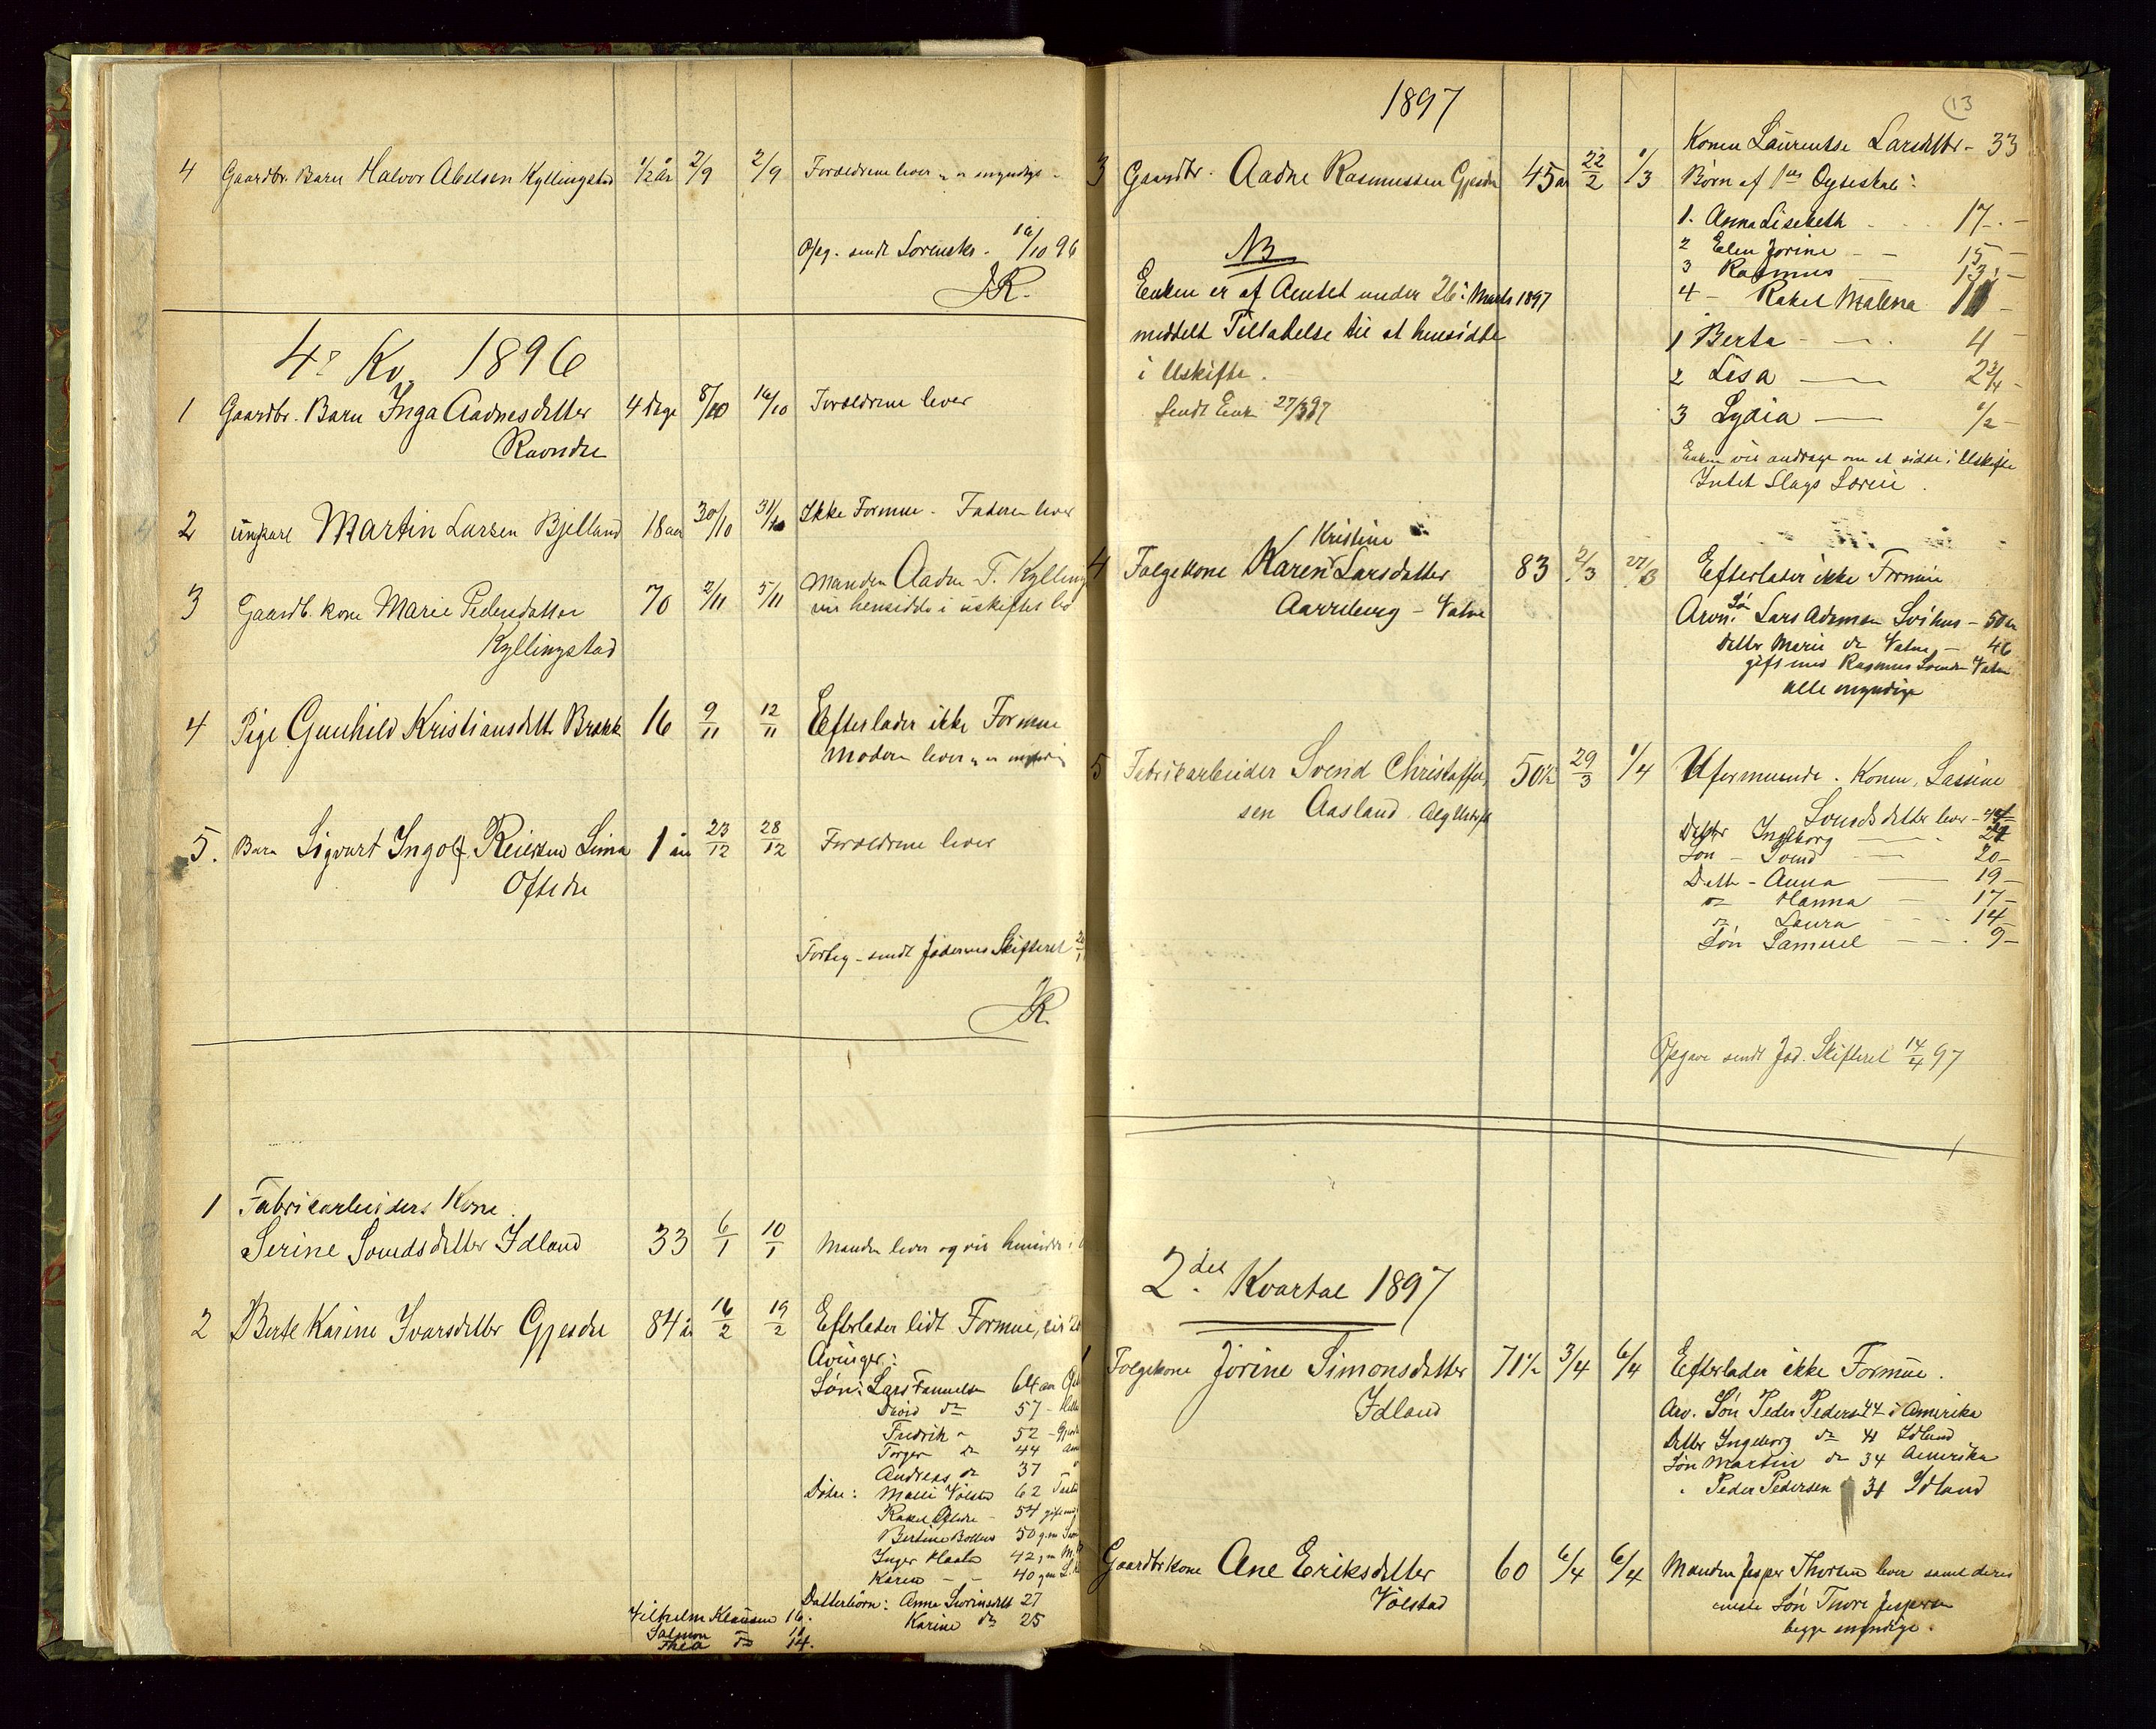 4 Gaardbr. Barn Halvor Abelsen Kyllingstad 1/2 år 2/9 2/9 Forældrene lever
Opg. sendt Sorensks. 16/10 96
JR.
4de Kv. 1896
1 Gaardbr. Barn Inga Aadnesdatter 4 Dage 8/10 16/10 Forældrene lever
Ravndal
2 ungkarl Martin Larsen Bjelland 18 aar 30/10 31/10 Ikke Formue - Faderen lever
3 Gaardb. kone Marie Pedersdatter 70 2/11 5/11 Manden Aadne T. Kylling
Kyllingstad vil hensidde i uskiftet bo
4 Pige Gunhild Kristiansdatt. Brekke 16 9/11 12/11 Efterlader ikke Formue
Moderen lever
5. Barn Sigvart Ingolf Reiersen Lima 1 år 23/12 28/12 Forældrene lever
Oftedal
Forteg - sendt Jæderens Skifteret
JR.
1 Fabrikarbeiders Kone
Serine Svendsdatter Idland 33 6/1 10/1 Manden lever og vil hensidde i
2 Berte Karine Ivarsdatter Gjesdal 84 år 16/2 19/2 Efterlader lidt Formue,
Arvinger:
Søn: Lars Samuelsen 64 aar
David do 57
Fredrik " 52
Torger do 44
Andreas do 37
Døtre: Malli Vølstad 62
Rakel Oftedal - 54 gift med
Bertine 50 g.m
Inger Haaland 42 g.m
Karen - - 40 g.m
Datterbørn: Anna 27
Karine do 25
Vilhelm Klausen 16.
Salmon do 11
Thea do 14.
1897
13
3 Gaardbr. Aadne Rasmussen Gjesdal 45 år 22/2 1/3 Konen Laurentse Larsdatter - 33
Børn af 1ste Ægteskab:
1. Anna Lisebeth 17 -
2 Elen Jorine - - 15 -
3 Rasmus 13 -
4 - Rakel Malena 11 -
1 Berta - 4 -
2 Lisa 2 3/4 -
3 Lydia 1/2 -
Enken vil andrage om at sidde i Uskifte
Intet Slags Særeie.
NB
Enken er af Amtet under 26de Marts 1897
meddelt Tilladelse til at hensidde
i Uskifte.
Sendt Enk 27/3 97
Kristine
4 Folgekone Karen Larsdatter 83 2/3 22/3 Efterlader ikke Formue
Aarrberg - Vatne
Arvin. Søn Lars Adamsen Svihus - 50 år
Datter Marie do Vatne - 46
gift med Rasmus Svendsen Vatne
alle myndige
5 Fabrikarbeider Svend Christoffer- 50 1/2 29/3 1/4 Uformuende. Konen Lassine
sen Aasland Svendsdatter lever -
Datter Ingeborg
Søn - Svend 20 -
Datt - Anna 19 -
do Hanna 17 -
do Laura 14 -
Søn Samuel 9 -
Opgave sendt Jæd. Skifteret 14/4 97
2det Kvartal 1897
1 Folgekone Jorine Simonsdatter 71 1/2 3/4 6/4 Efterlader ikke Formue.
Idland
Arv. Søn Peder Pedersen 44 i Amerika
Datter Ingeborg do 41 Idland
Søn Martin do 34 Amerika
" Peder Pedersen 31 Idland
Gaardbr kone Ane Eriksdatter 60 6/4 6/4 Manden Jesper Thorsen lever samt deres
Vølstad eneste Søn Thore Jespersen
begge myndige.